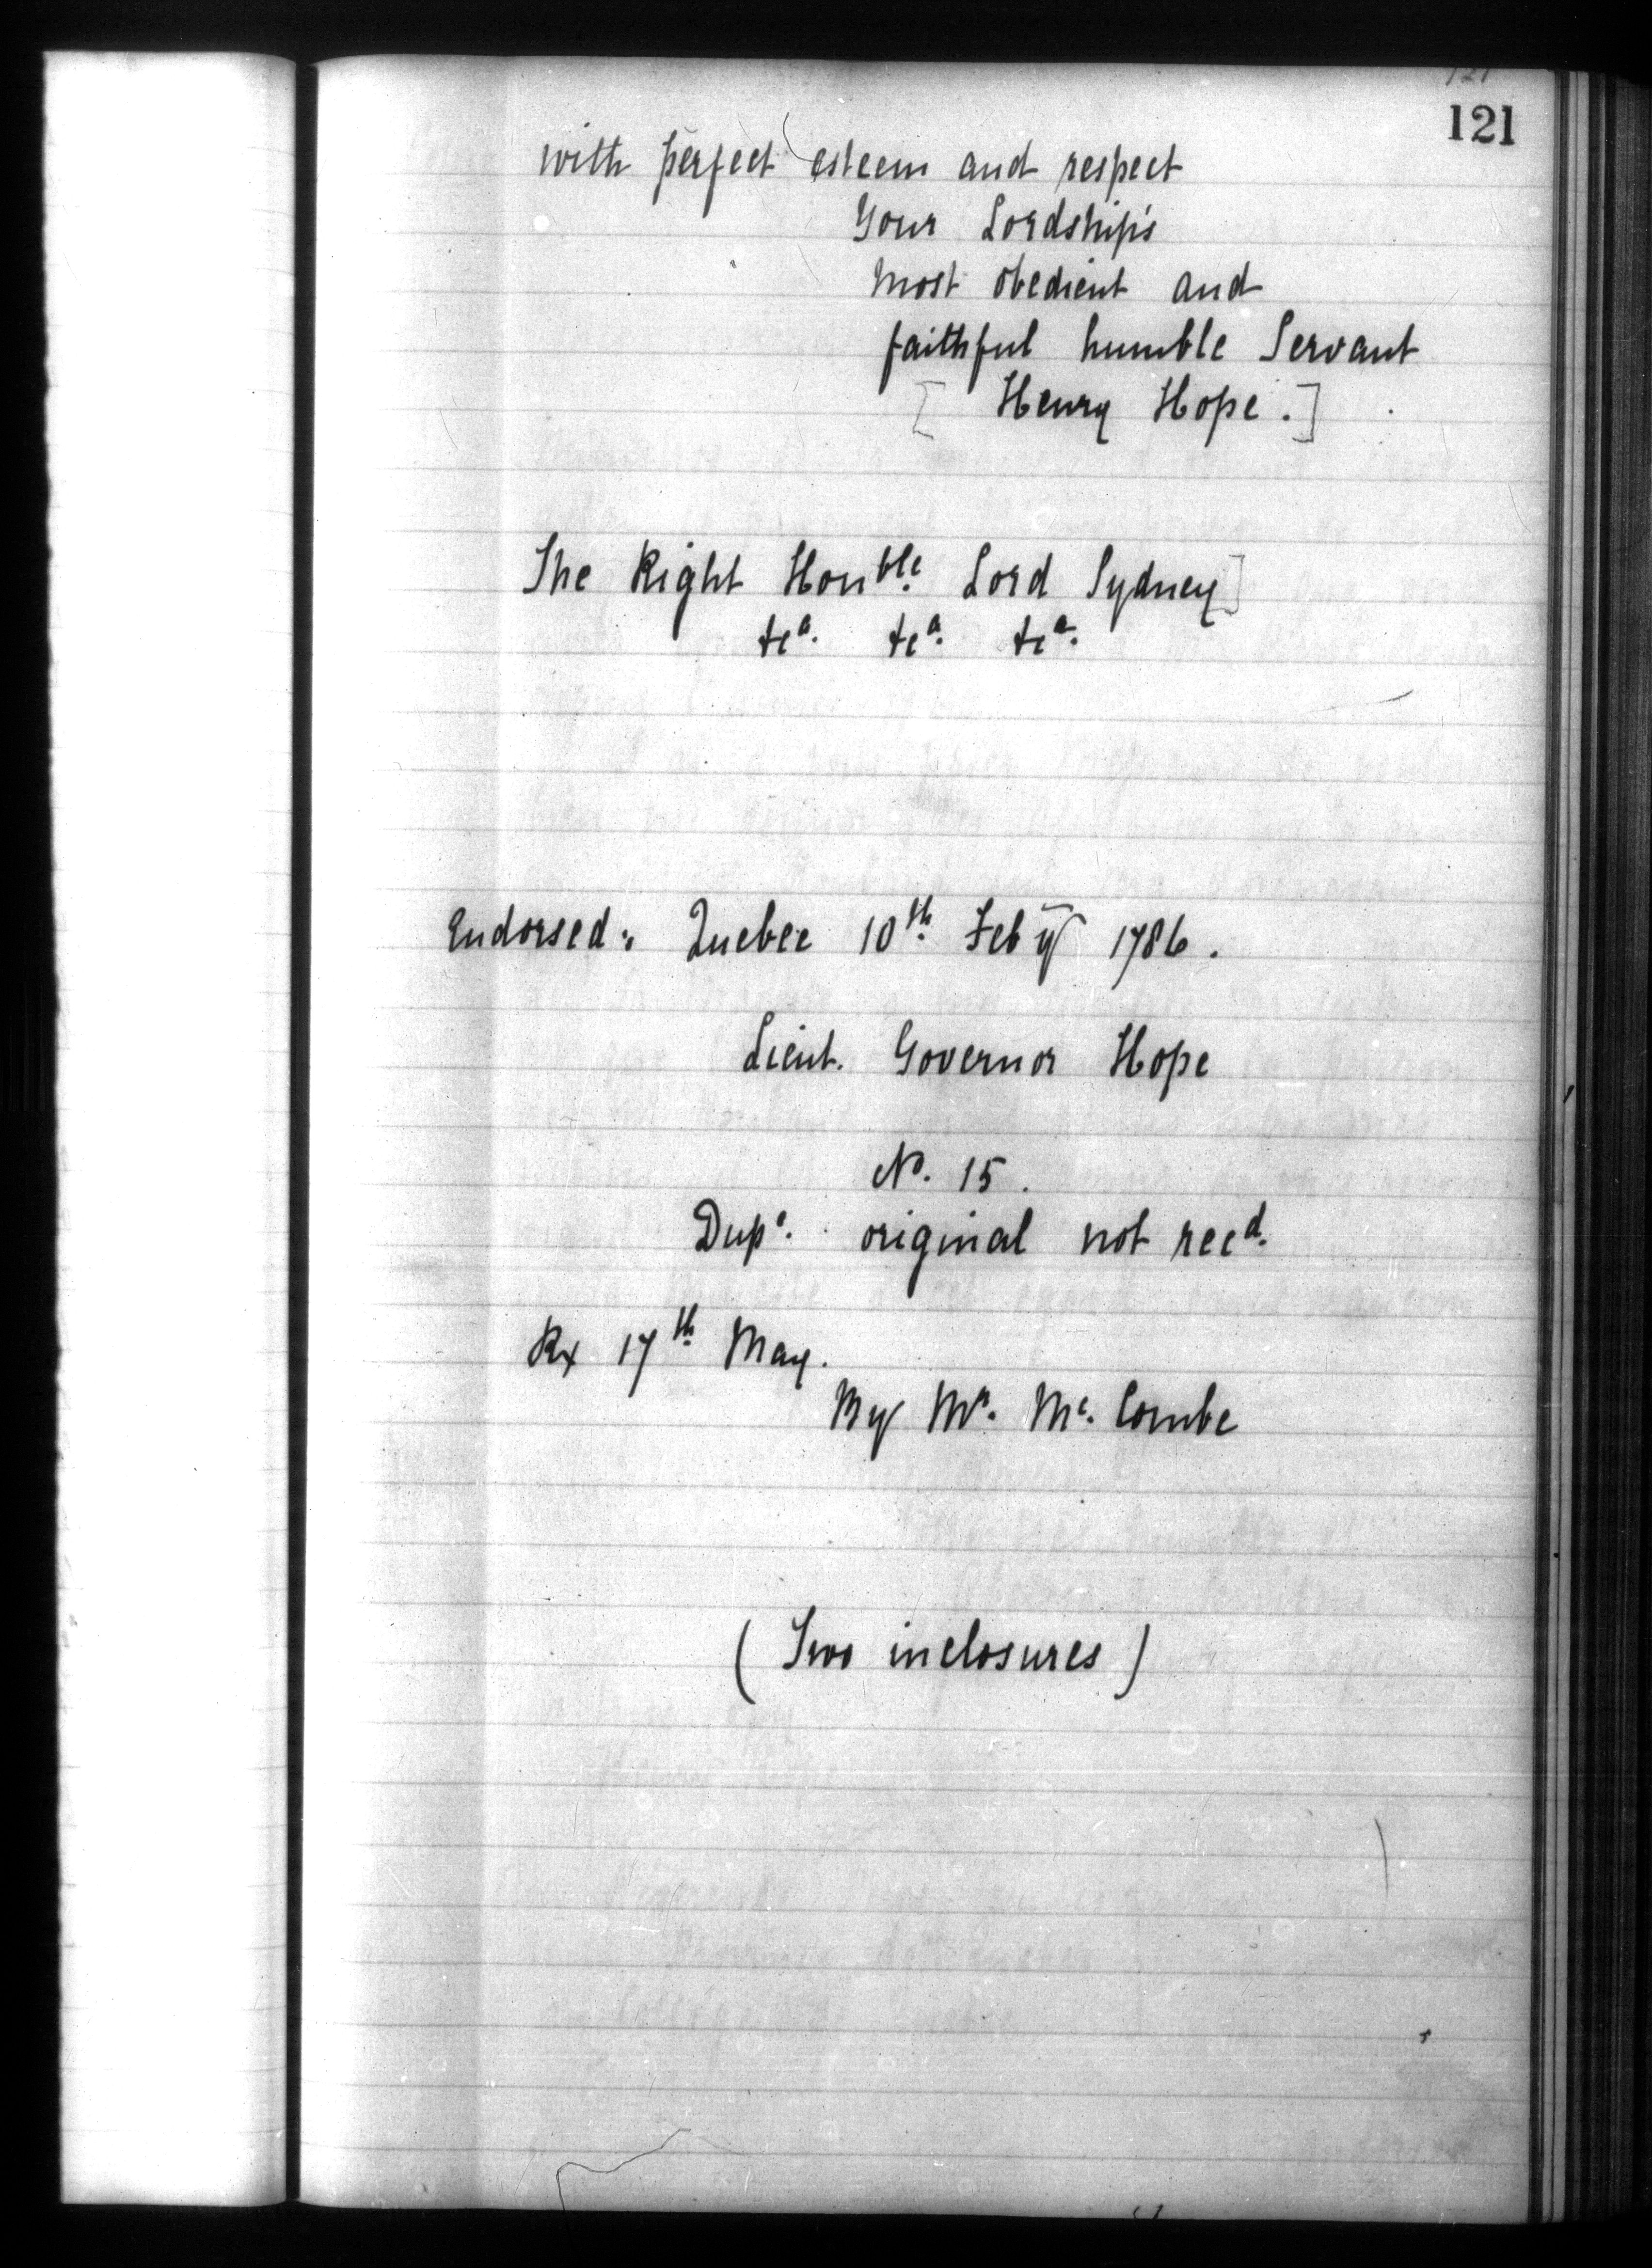 121
with perfect esteem and respect
Your Lordship's
most obedient and
faithful humble Servant
[ Henry Hope. ]
The Right Honble. Lord Sydney]
&ca. &ca. &ca.
Endorsed: Quebec 10th. Feby 1786.
Lieut. Governor Hope
No. 15.
Dupe. original not recd.
Rx 17th May.
By Mr. Mc. Combe
(Two inclosures)